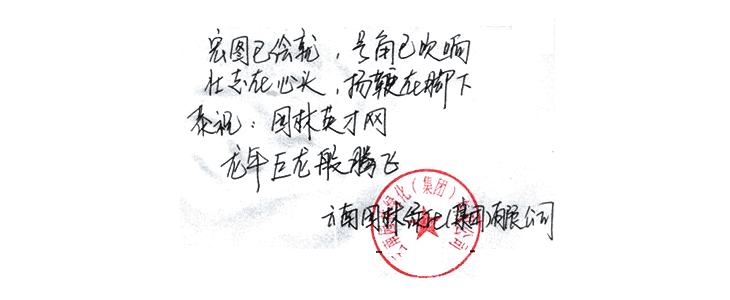 宏图已绘就，号角已吹响
壮志在心头，扬鞭在脚下
恭祝：园林英才网
龙年巨龙般腾飞
云南园林绿化(集团)有限公司
云南园林绿化(集团)有限公司